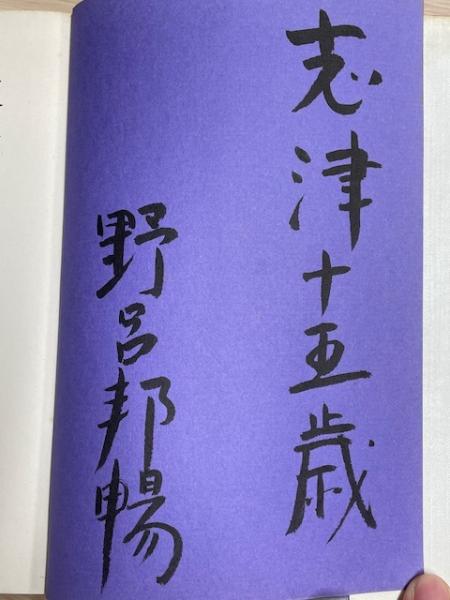 志津十五歳
野呂邦暢